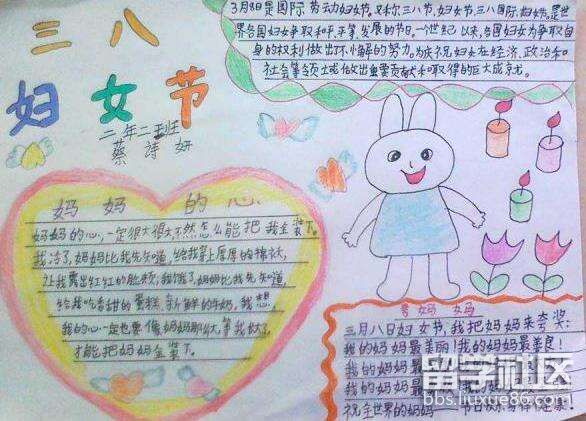 三八
妇女节
二年二班
蔡诗妍
3月8日是国际劳动妇女节,又称三八节,妇女节,三八国际妇女节。是世
界各国妇女争取和平,平等,发展的节日。一世纪以来,各国妇女为争取自
身的权利做出不懈的努力。为庆祝妇女在经济,政治和
社会等领域做出重要贡献和取得的巨大成就。
妈妈的心
妈妈的心,一定很大很大,不然怎么能把我全装下。
我冷了,妈妈比我先知道,给我穿上厚厚的棉袄,
让我露出红红的脸颊;我饿了妈妈比我先知道,
给我吃香甜的蛋糕,新鲜的牛奶,我想,
我的心一定也要像妈妈那么大,等我大了,
才能把妈妈全装下。
夸妈妈
三月八日妇女节,我把妈妈来夸奖:
我的妈妈最美丽!我的妈妈最善良!
我的妈妈最
我的妈妈最
祝全世界的妈妈——节日快乐
留学社区
bbs.liuxue86.com